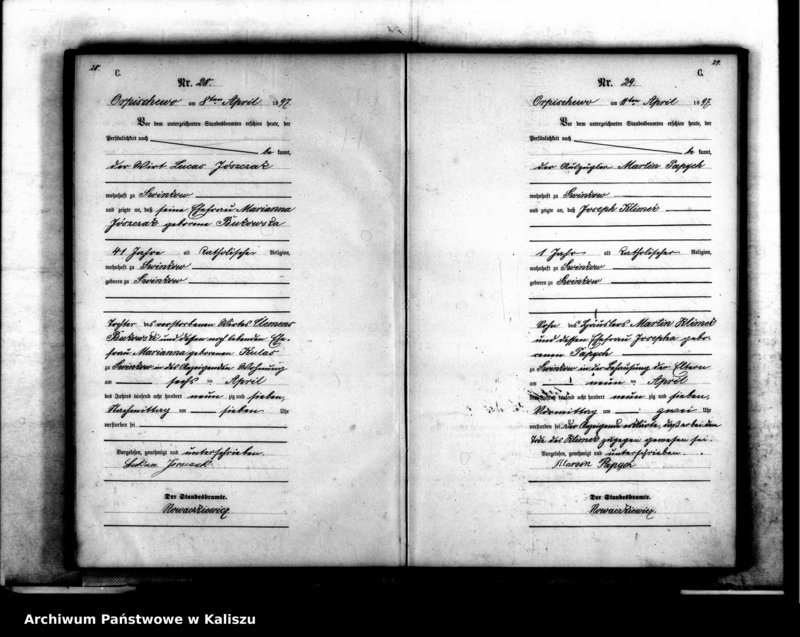 28.
C.
Nr. 28.
Orpischewo am 8ten April 1897.
Vor dem unterzeichneten Standesbeamten erschien heute, der
Persönlichkeit nach
be kannt,
der Wirt Lucas Józczak
wohnhaft zu Swinkow
und zeigte an, daß seine Ehefrau Marianna
Józczak geborene Bukowska
41 Jahre alt katholischer Religion,
wohnhaft zu Swinkow
geboren zu Swinkow
Tochter des verstorbenen Wirtes Clemens
Bukowski und dessen noch lebenden Ehe-
frau Marianna geborenen Kulas
zu Swinkow in des Anzeigenden Wohnung
am sechs ten April
des Jahres tausend acht hundert neun zig und sieben,
Nachmittag um sieben Uhr
verstorben sei
Vorgelesen, genehmigt und unterschrieben.
Der Standesbeamte.
Nowaczkiewicz.
29.
C.
Nr. 29.
Orpischewo am ten April 1897.
Vor dem unterzeichneten Standesbeamten erschien heute, der
Persönlichkeit nach
be kannt,
der Auszügler Martin Papych
wohnhaft zu Swinkow
und zeigte an, daß Joseph Klimek
1 Jahr alt katholischer Religion,
wohnhaft zu Swinkow
geboren zu Swinkow
Sohn des Häuslers Martin Klimek
und dessen Ehefrau Josepha gebo-
renen Papych
zu Swinkow in der Behausung der Eltern
am neun ten April
des Jahres tausend acht hundert neun zig und sieben,
Vormittag um zwei Uhr
verstorben sei. Der Anzeigende erklärte, daß er bei dem
Tode des Klimek zugegen gewesen sei.
Vorgelesen, genehmigt und unterschrieben.
Marcin Papych
Der Standesbeamte.
Nowaczkiewicz.
Archiwum Państwowe w Kaliszu